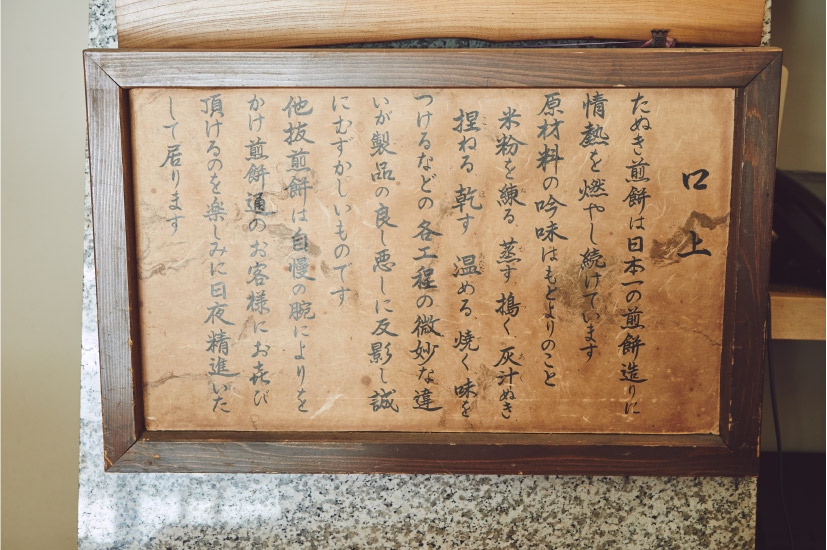 口上
たぬき煎餅は日本一の煎餅造りに
情熱を燃やし続けています
原材料の吟味はもとよりのこと
米粉を練る 蒸す 搗く 灰汁ぬき
捏ねる 乾す 温める 焼く 味を
つけるなどの各工程の微妙な違
いが製品の良し悪しに反影し誠
にむずかしいものです
他抜煎餅は自慢の腕によりを
かけ煎餅通のお客様にお喜び
頂けるのを楽しみに日夜精進いた
して居ります